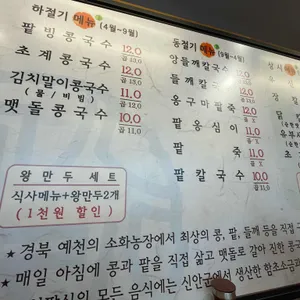 하절기 메뉴 [4월~9월]
팥빙콩국수 12.0
곱 13.0
초계콩국수 12.0
곱 13.0
김치말이콩국수 11.0
(물/비빔) 곱 12.0
맷돌콩국수 10.0
곱 11.0
동절기 메뉴 [9월~4월]
앙들깨칼국수
들깨칼
옹구마팥죽 12.0
팥옹심이 11.0
팥죽 11.0
팥칼국수 10.0
곱 11.0
왕만두세트
식사메뉴+왕만두2개
(1천원 할인)
★ 경북 예천의 소화농장에서 최상의 콩, 팥, 들깨 등을 직접
★ 매일 아침에 콩과 팥을 직접 삶고 맷돌로 갈아 진한 콩국
모든 음식에는 신안군에서 생산한 함초소금과